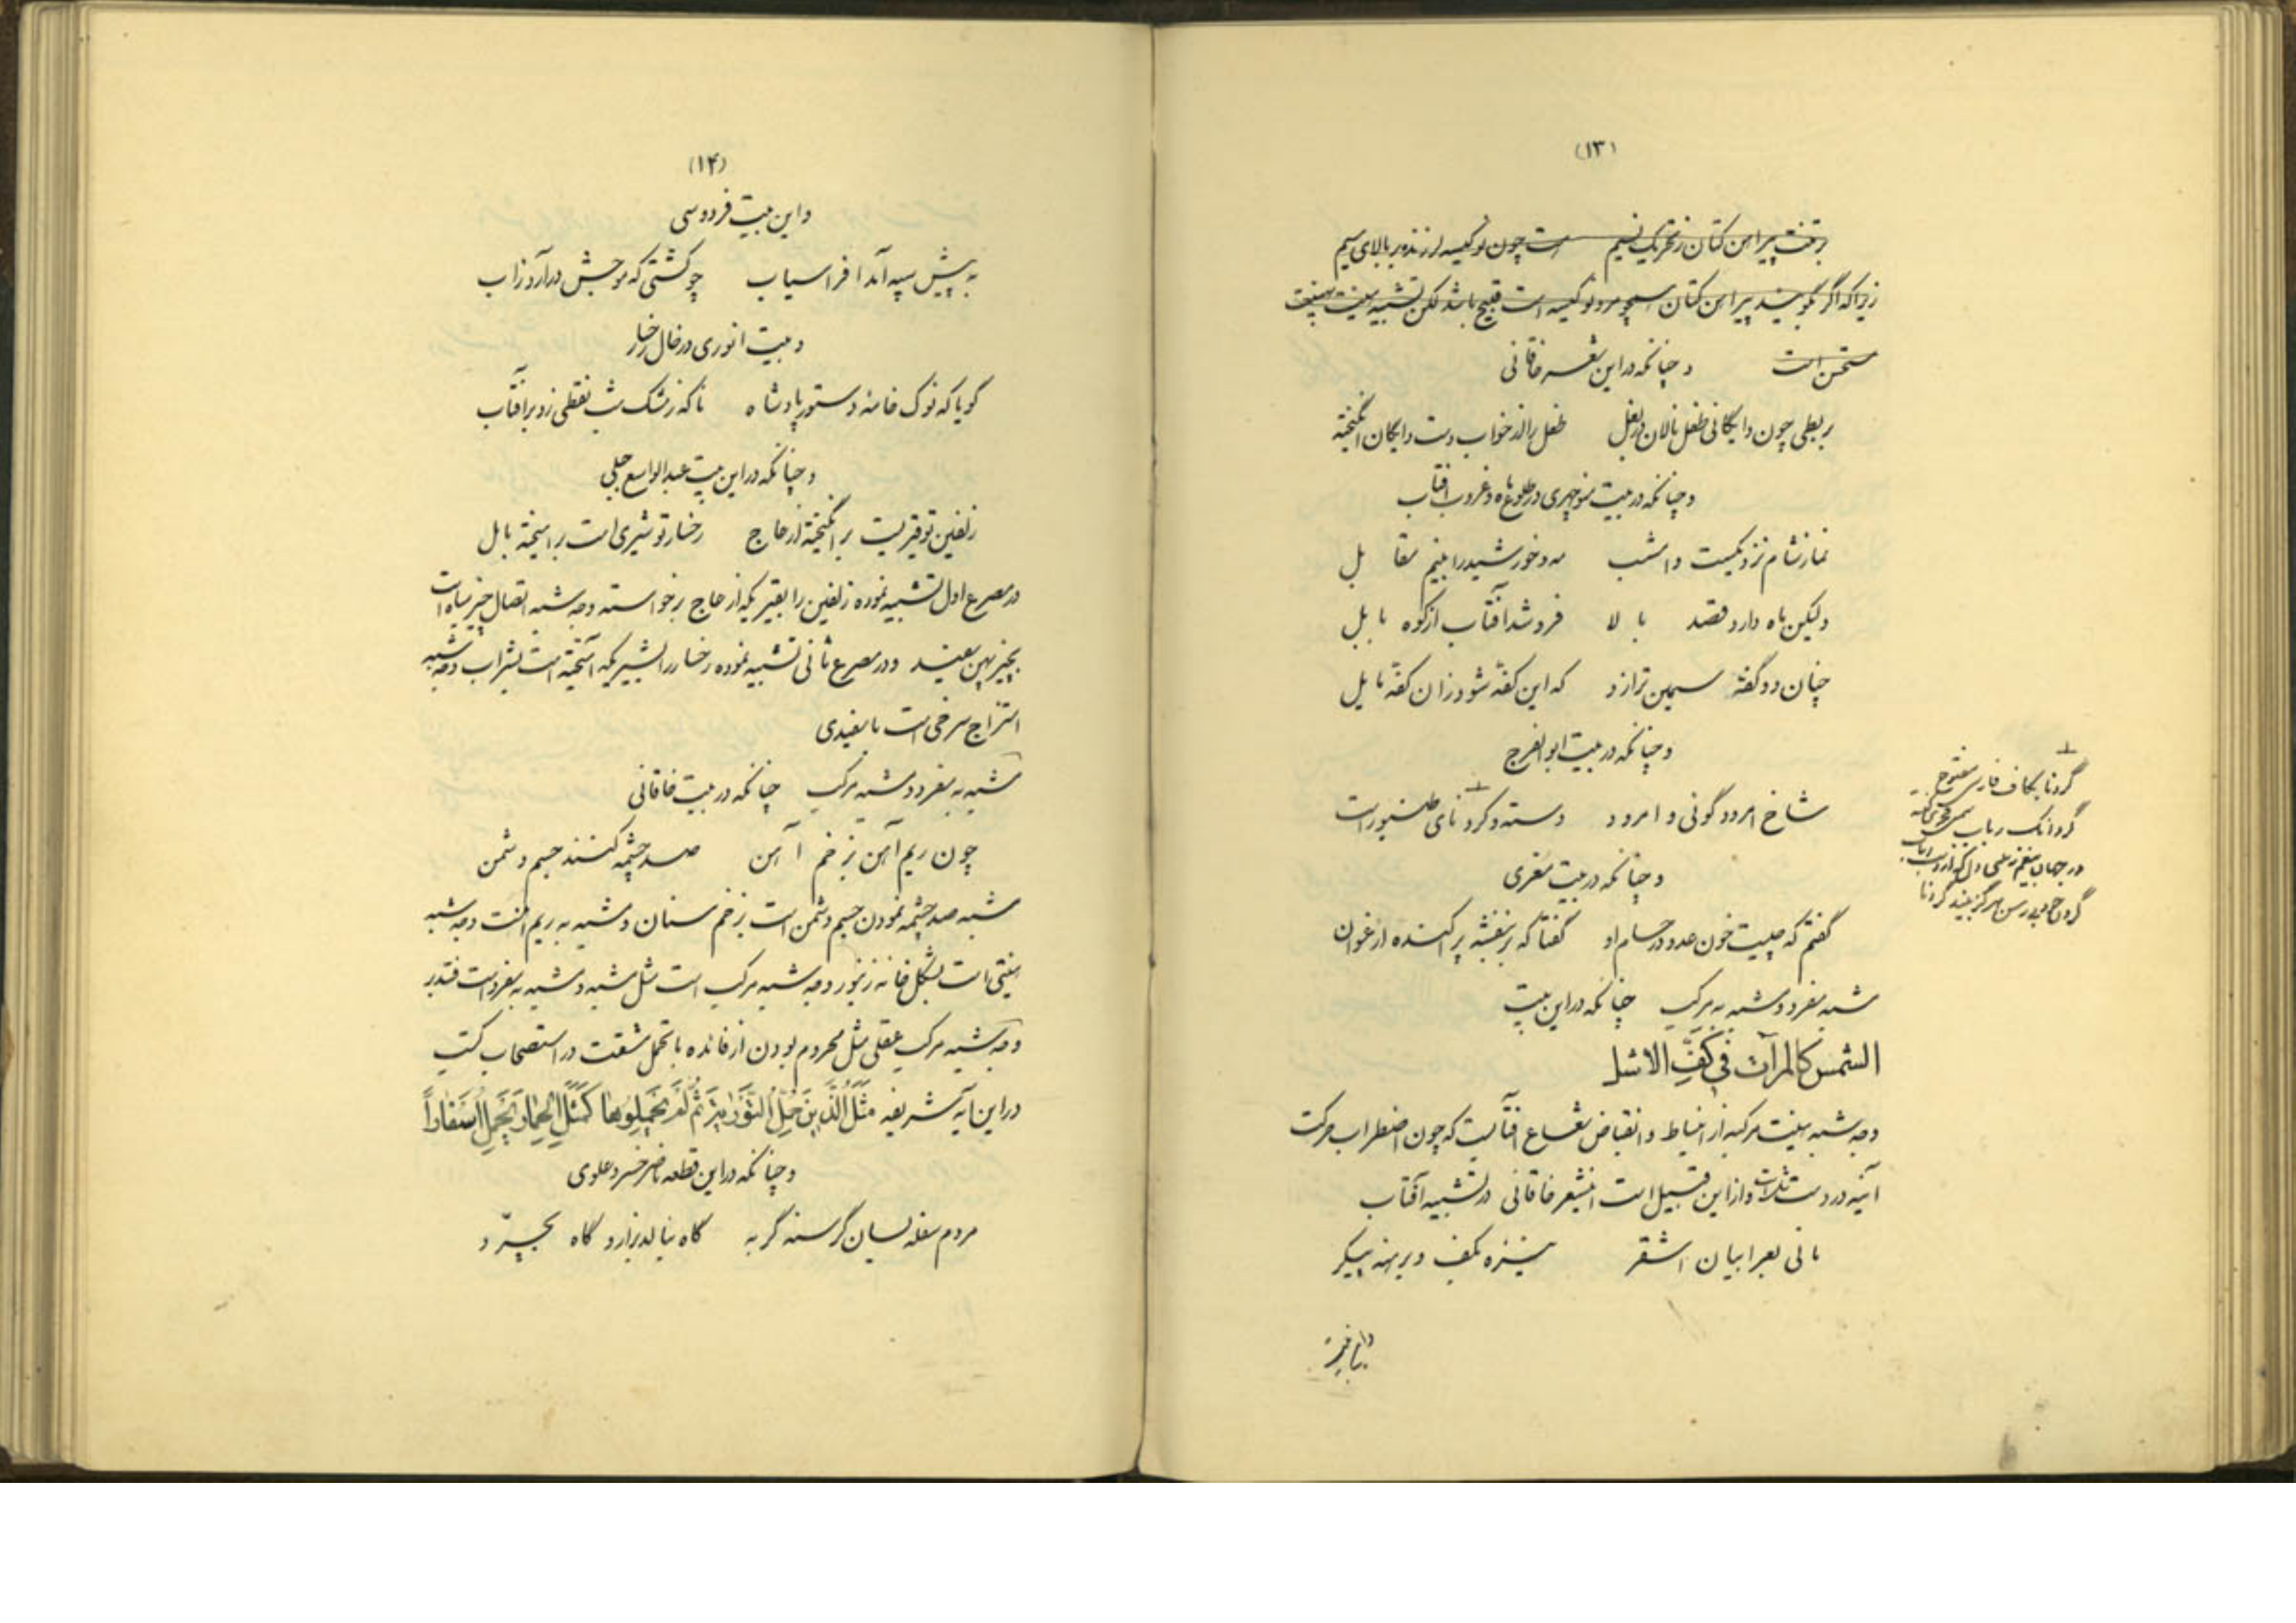 (۱۳)
برتنت پیراهن کتان ز تحریک نسیم است چون نوکیسه لرزنده بر بالای سیم
زیرا که اگر بگویند پیراهن کتان همچو مرد نوکیسه است قبیح باشد لکن تشبیه هیئت بهیئت
مستحسن است و چنانکه در این شعر خاقانی
بربطی چون دایگانی طفل نالان در بغل طفل را از خواب دست دایگان انگیخته
و چنانکه در بیت منوچهری در طلوع ماه و غروب آفتاب
نماز شام نزدیکست و امشب مه و خورشید را بینم مقابل
ولیکن ماه دارد قصد بالا فروشد آفتاب از کوه بابل
چنان دو کفه سیمین ترازو که این کفه شود زان کفه مایل
و چنانکه در بیت ابوالفرج
شاخ امرود گوئی و امرود دسته و گردنای طنبور است
گردنا بکاف فارسی مفتوح
و چنانکه در بیت معزی
گفتم که چیست خون عدو در حسام او گفتا که بر بنفشه پراکنده ارغوان
مشبه مفرد و مشبه به مرکب چنانکه در این بیت
الشمس کالمرآت فی کفّ الاشل
وجه شبه هیئت مرکبه از انبساط و انقباض شعاع آفتابست که چون اضطراب حرکت
آینه در دست شل است و از این قبیل است اینشعر خاقانی در تشبیه آفتاب
مانی بعرابیان اشقر نیزه بکف و برهنه پیکر
(۱۴)
و این بیت فردوسی
به پیش سپه آمد افراسیاب چو کشتی که موجش درآرد ز آب
و بیت انوری در خال رخسار
گویا که نوک خامه دستور پادشاه ناگه ز مشک شب نقطی زد بر آفتاب
و چنانکه در این بیت عبدالواسع جبلی
زلفین تو قیریست برانگیخته از عاج رخسار تو شیری است برامیخته با مل
در مصرع اول تشبیه نموده زلفین را بقیریکه از عاج برخواسته وجه شبه اتصال چیز سیاه است
بچیز پهن سفید و در مصرع ثانی تشبیه نموده رخسار را بشیریکه آمیخته است بشراب وجه شبه
امتزاج سرخی است با سفیدی
مشبه به مفرد و مشبه مرکب چنانکه در بیت خاقانی
چون ریم آهن ز زخم آهن صد چشمه کنند جسم دشمن
مشبه صد چشمه نمودن جسم دشمن است بزخم سنان و مشبه به ریم آهنست وجه شبه
هیئتی است بشکل خانه زنبور وجه شبه مرکب است مثل مشبه و مشبه به مفرد است فتدبر
وجه شبه مرکب عقلی مثل محروم بودن از فائده با تحمل مشقت در استصحاب کتب
در این آیه شریفه مَثَلُ الَّذینَ حُمِّلُوا التَّوْرٰیةَ ثُمَّ لَمْ یَحْمِلُوهٰا کَمَثَلِ الْحِمٰارِ یَحْمِلُ اَسْفٰاراً
و چنانکه در این قطعه ناصر خسرو علوی
مردم سفله بسان گرسنه گربه گاه بنالد بزار و گاه بخرّد